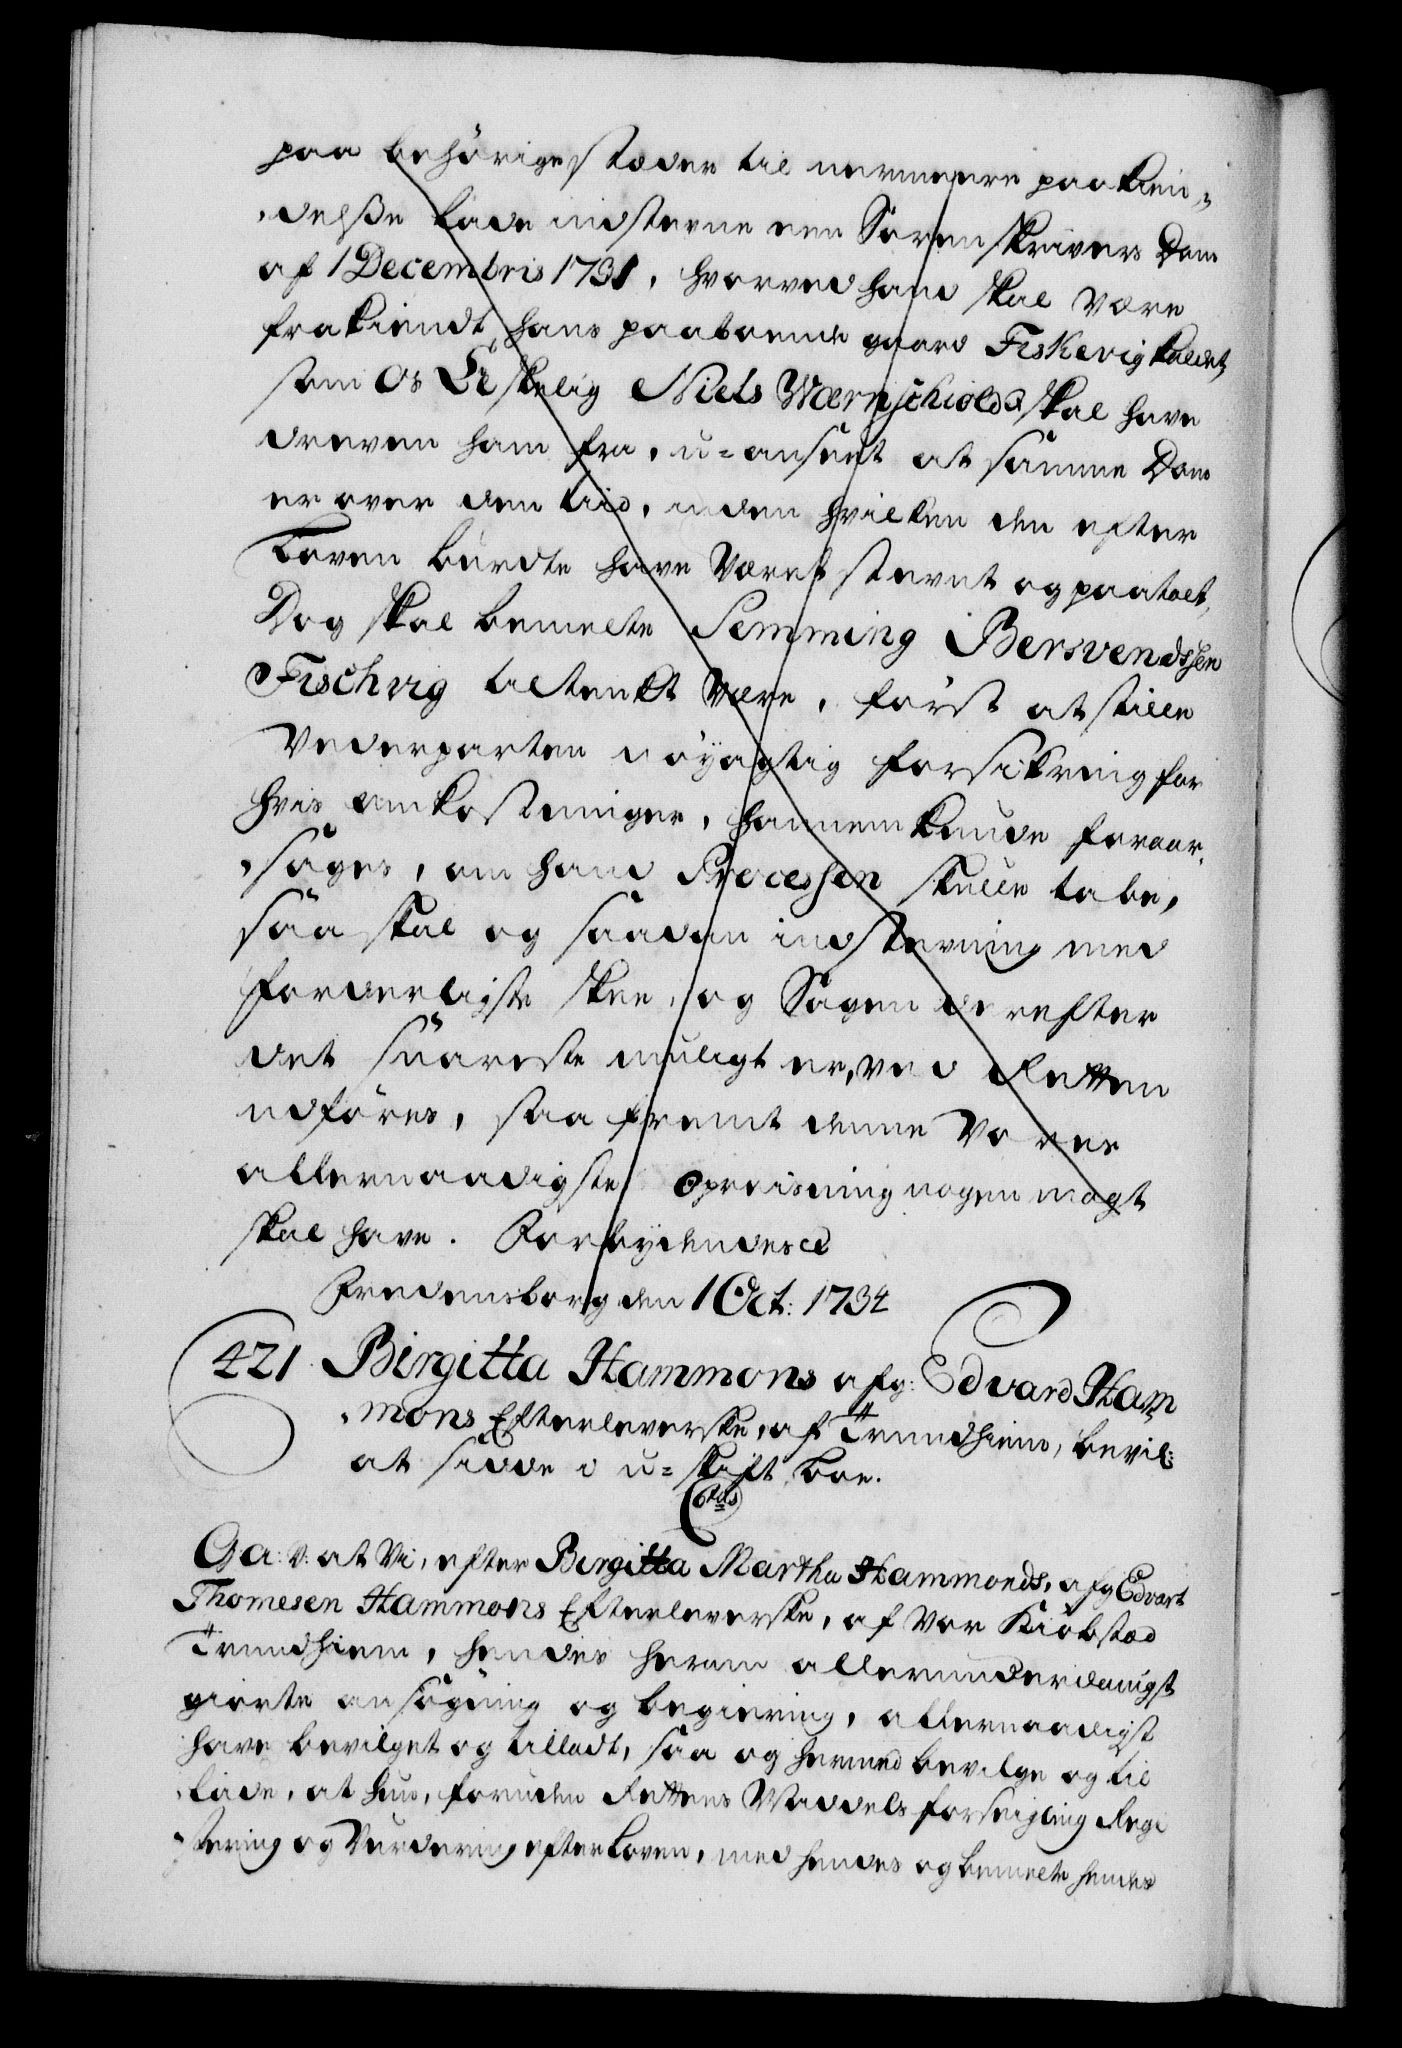 paa behörige stæder til nermeere paakien-
delße lade indstevne een Sorenskrivers Dom
af 1 Decembris 1731, hvorved hand skal være
frakiendt hans paaboende gaard Fiskevig kaldet,
som Os Elskelig Niels Wærnschiold skal have
dreven ham fra, u-anseet at samme Dom
er over den tiid, inden hvilken den efter
Loven burdte have været stevnt og paatalt,
Dog skal bemelte Semming Bersvendssen
Fischvig tiltenkt være, först at stille
Vederparten nöyagtig forsikring for
hvis omkostninger, hannem kunde foraar-
sages, om hand Processen skulle tabe,
saa skal og saadan indstevning med
forderligste skee, og Sagen derefter
det snareste muligt er, ved Retten
udföres, saa fremt denne Vores
allernaadigste Opreisning nogen magt
skal have. Forbydendes etc
Fredensborg den 1 Oct: 1734
421. Birgitta Hammons afg: Edvard Ham
mons Efterleverske, af Trundhiem, bevil:
at sidde i u-skift boe.
G. a: v: at Vi, efter Birgitta Martha Hammonds, afg Edvart
Thomesen Hammons Efterleverske, af Vor Kiöbstæd
Trundhiem, hendes herom allerunderdanigst
giorte ansögning og begiering, allernaadigst
have bevilget og tilladt, saa og hermed bevilge og til
lade, at hun, foruden Rettens Middels forseigling Regi
stering og Vurdering efter Loven, med hendes og bemelte hendes